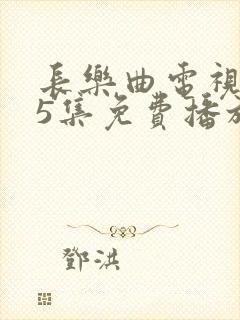 長樂曲電視
5集免費播放
鄧洪